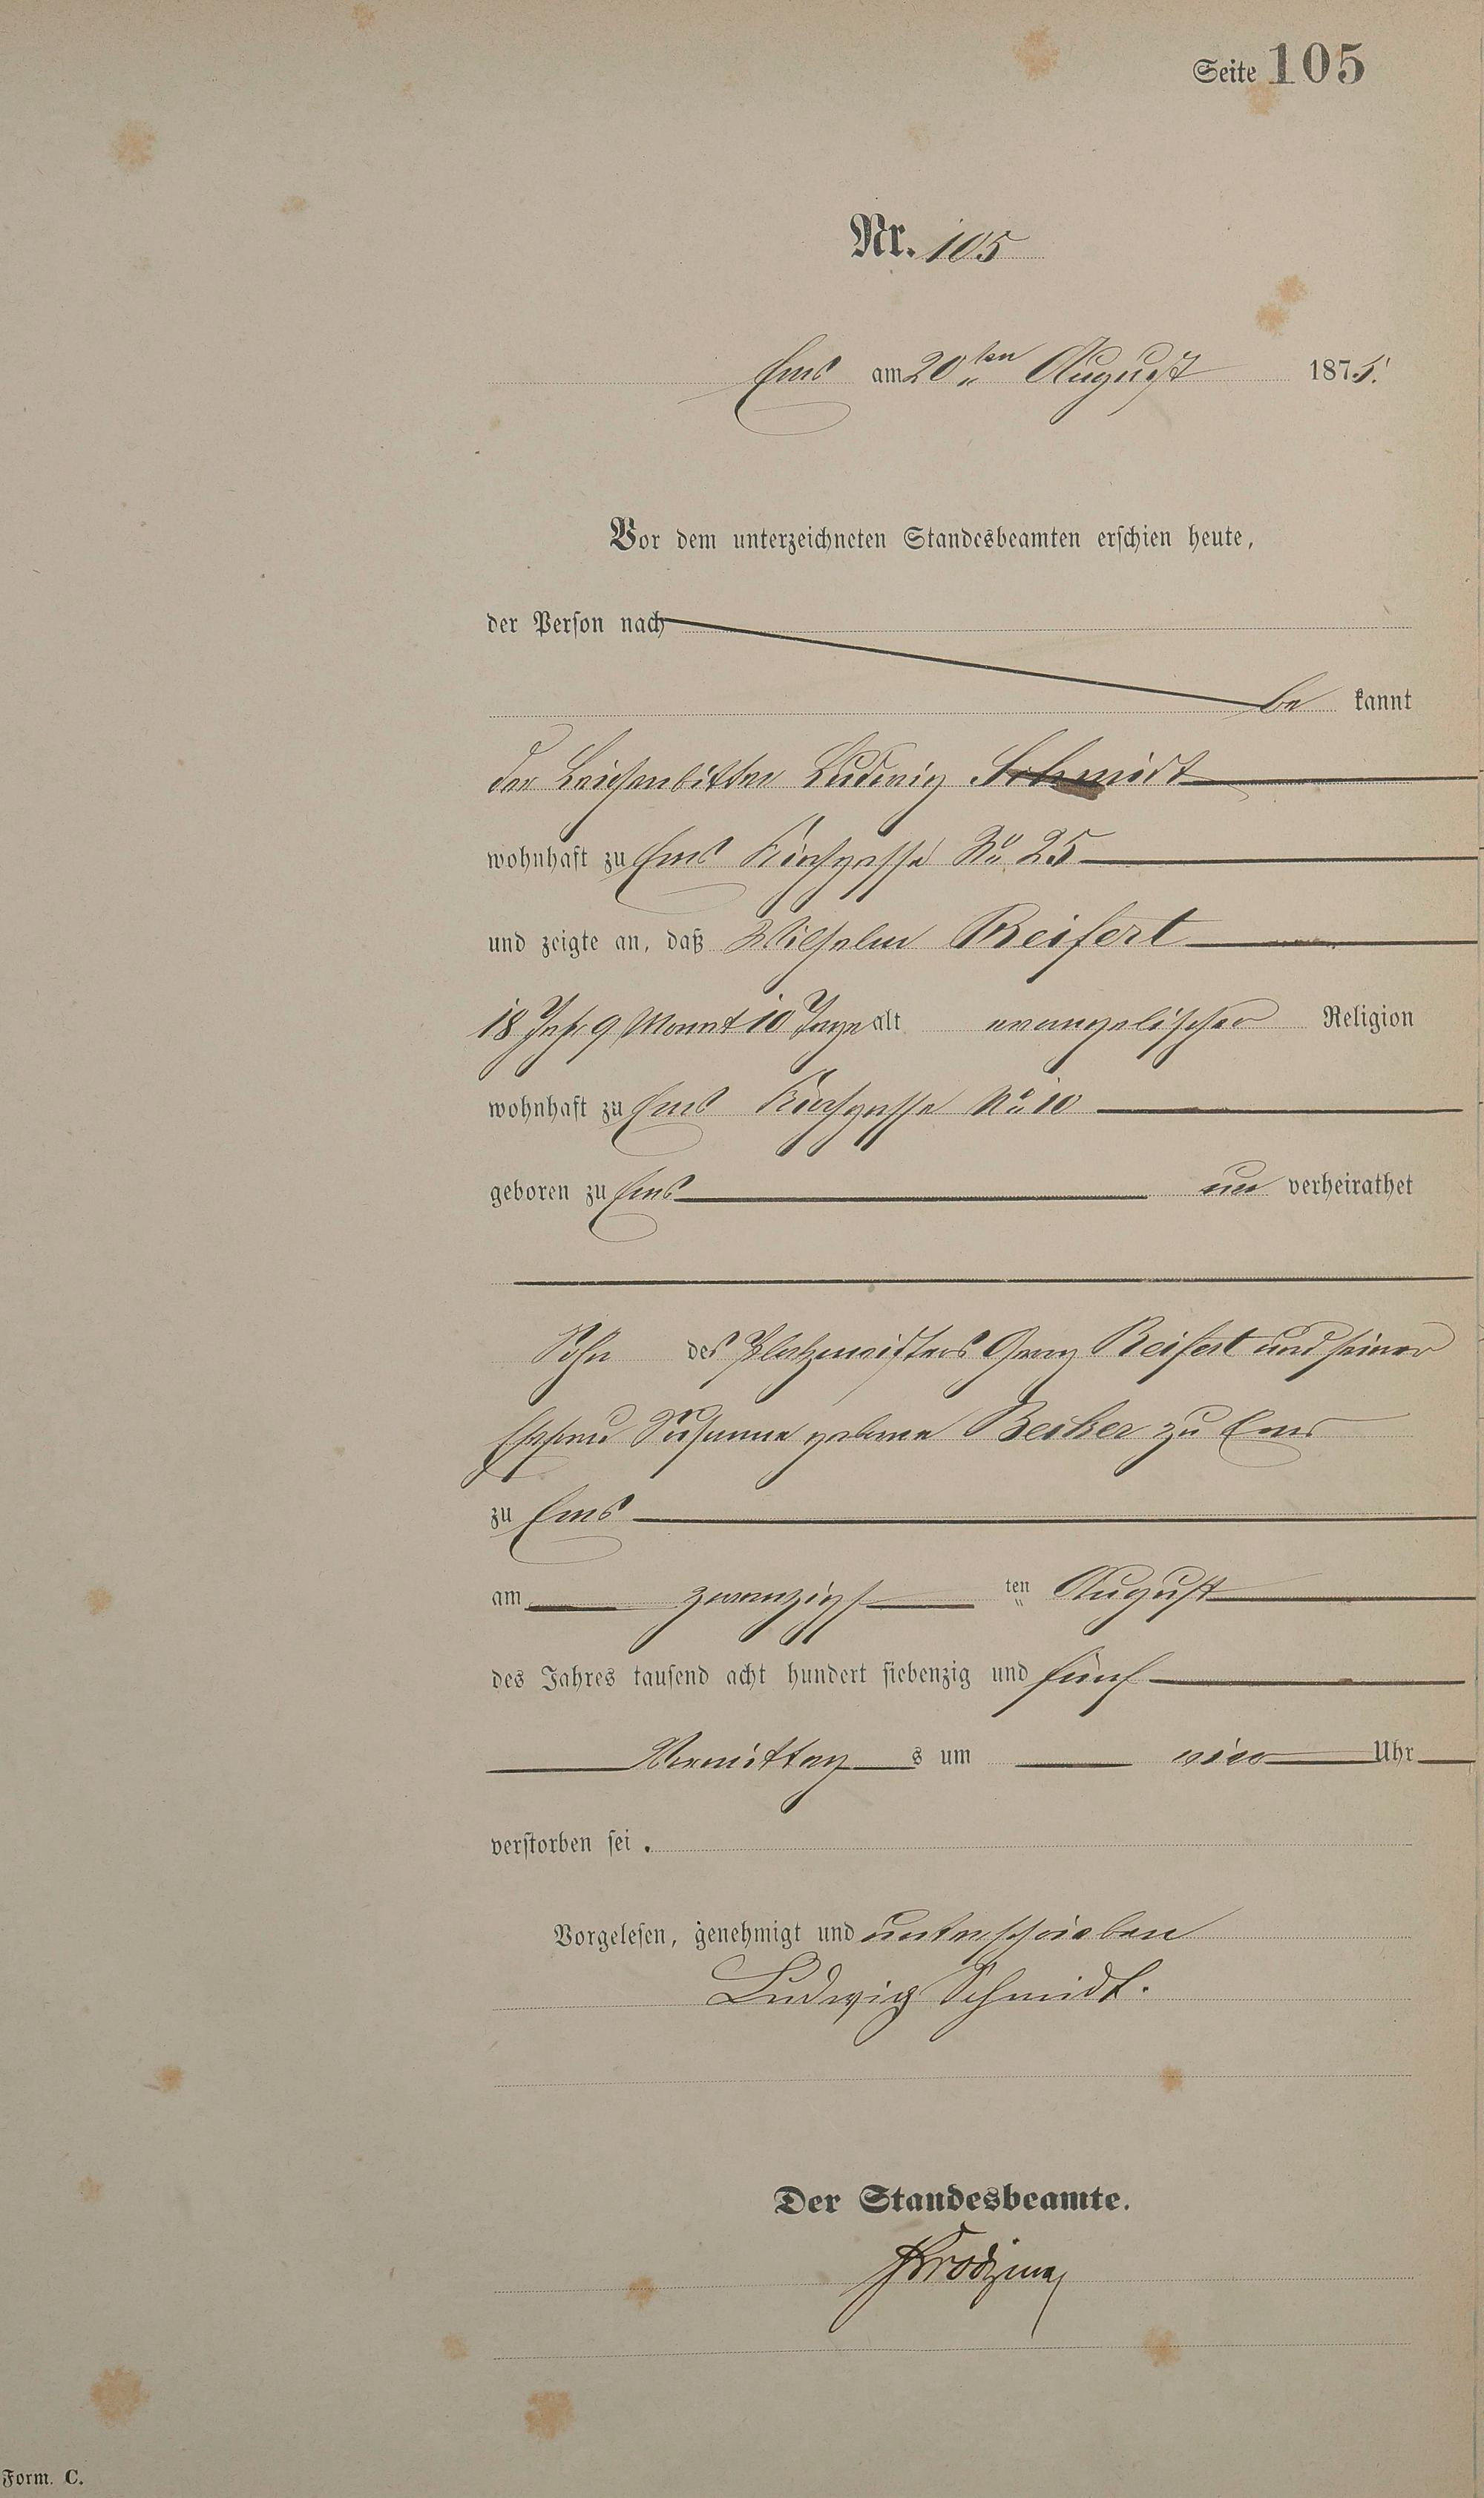 Seite 105
Nr. 105
Ems am 20ten August 1875.
Vor dem unterzeichneten Standesbeamten erschien heute,
der Person nach
be kannt
der Leichenbitter Ludwig Schmidt
wohnhaft zu Ems Kirchgasse No 25
und zeigte an, daß Wilhelm Reifert
18 Jahr 9 Monat 10 Tage alt evangelischer Religion
wohnhaft zu Ems Kirchgasse No 10
geboren zu Ems un verheirathet
Sohn des Platzmeisters Georg Reifert und seiner
Ehefrau Susanne geborne Becker zu Ems
zu Ems
am zwanzigsten August
des Jahres tausend acht hundert siebenzig und fünf
Vormittags um vier Uhr
verstorben sei.
Vorgelesen, genehmigt und unterschrieben
Ludwig Schmidt.
Der Standesbeamte.
Form. C.